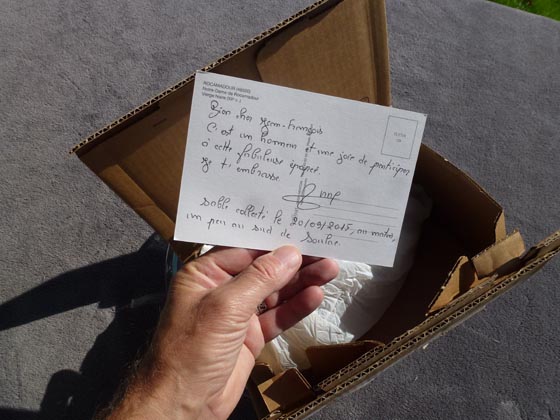 ROCAMADOUR (46500)
Notre-Dame de Rocamadour
Vierge Noire (XIIᵉ s.)
Bien cher Jean-François
C'est un honneur et une joie de participer
à cette fabuleuse épopée.
Je t'embrasse.
Sable collecté le 20/09/2015, au matin,
un peu au sud de Soulac.